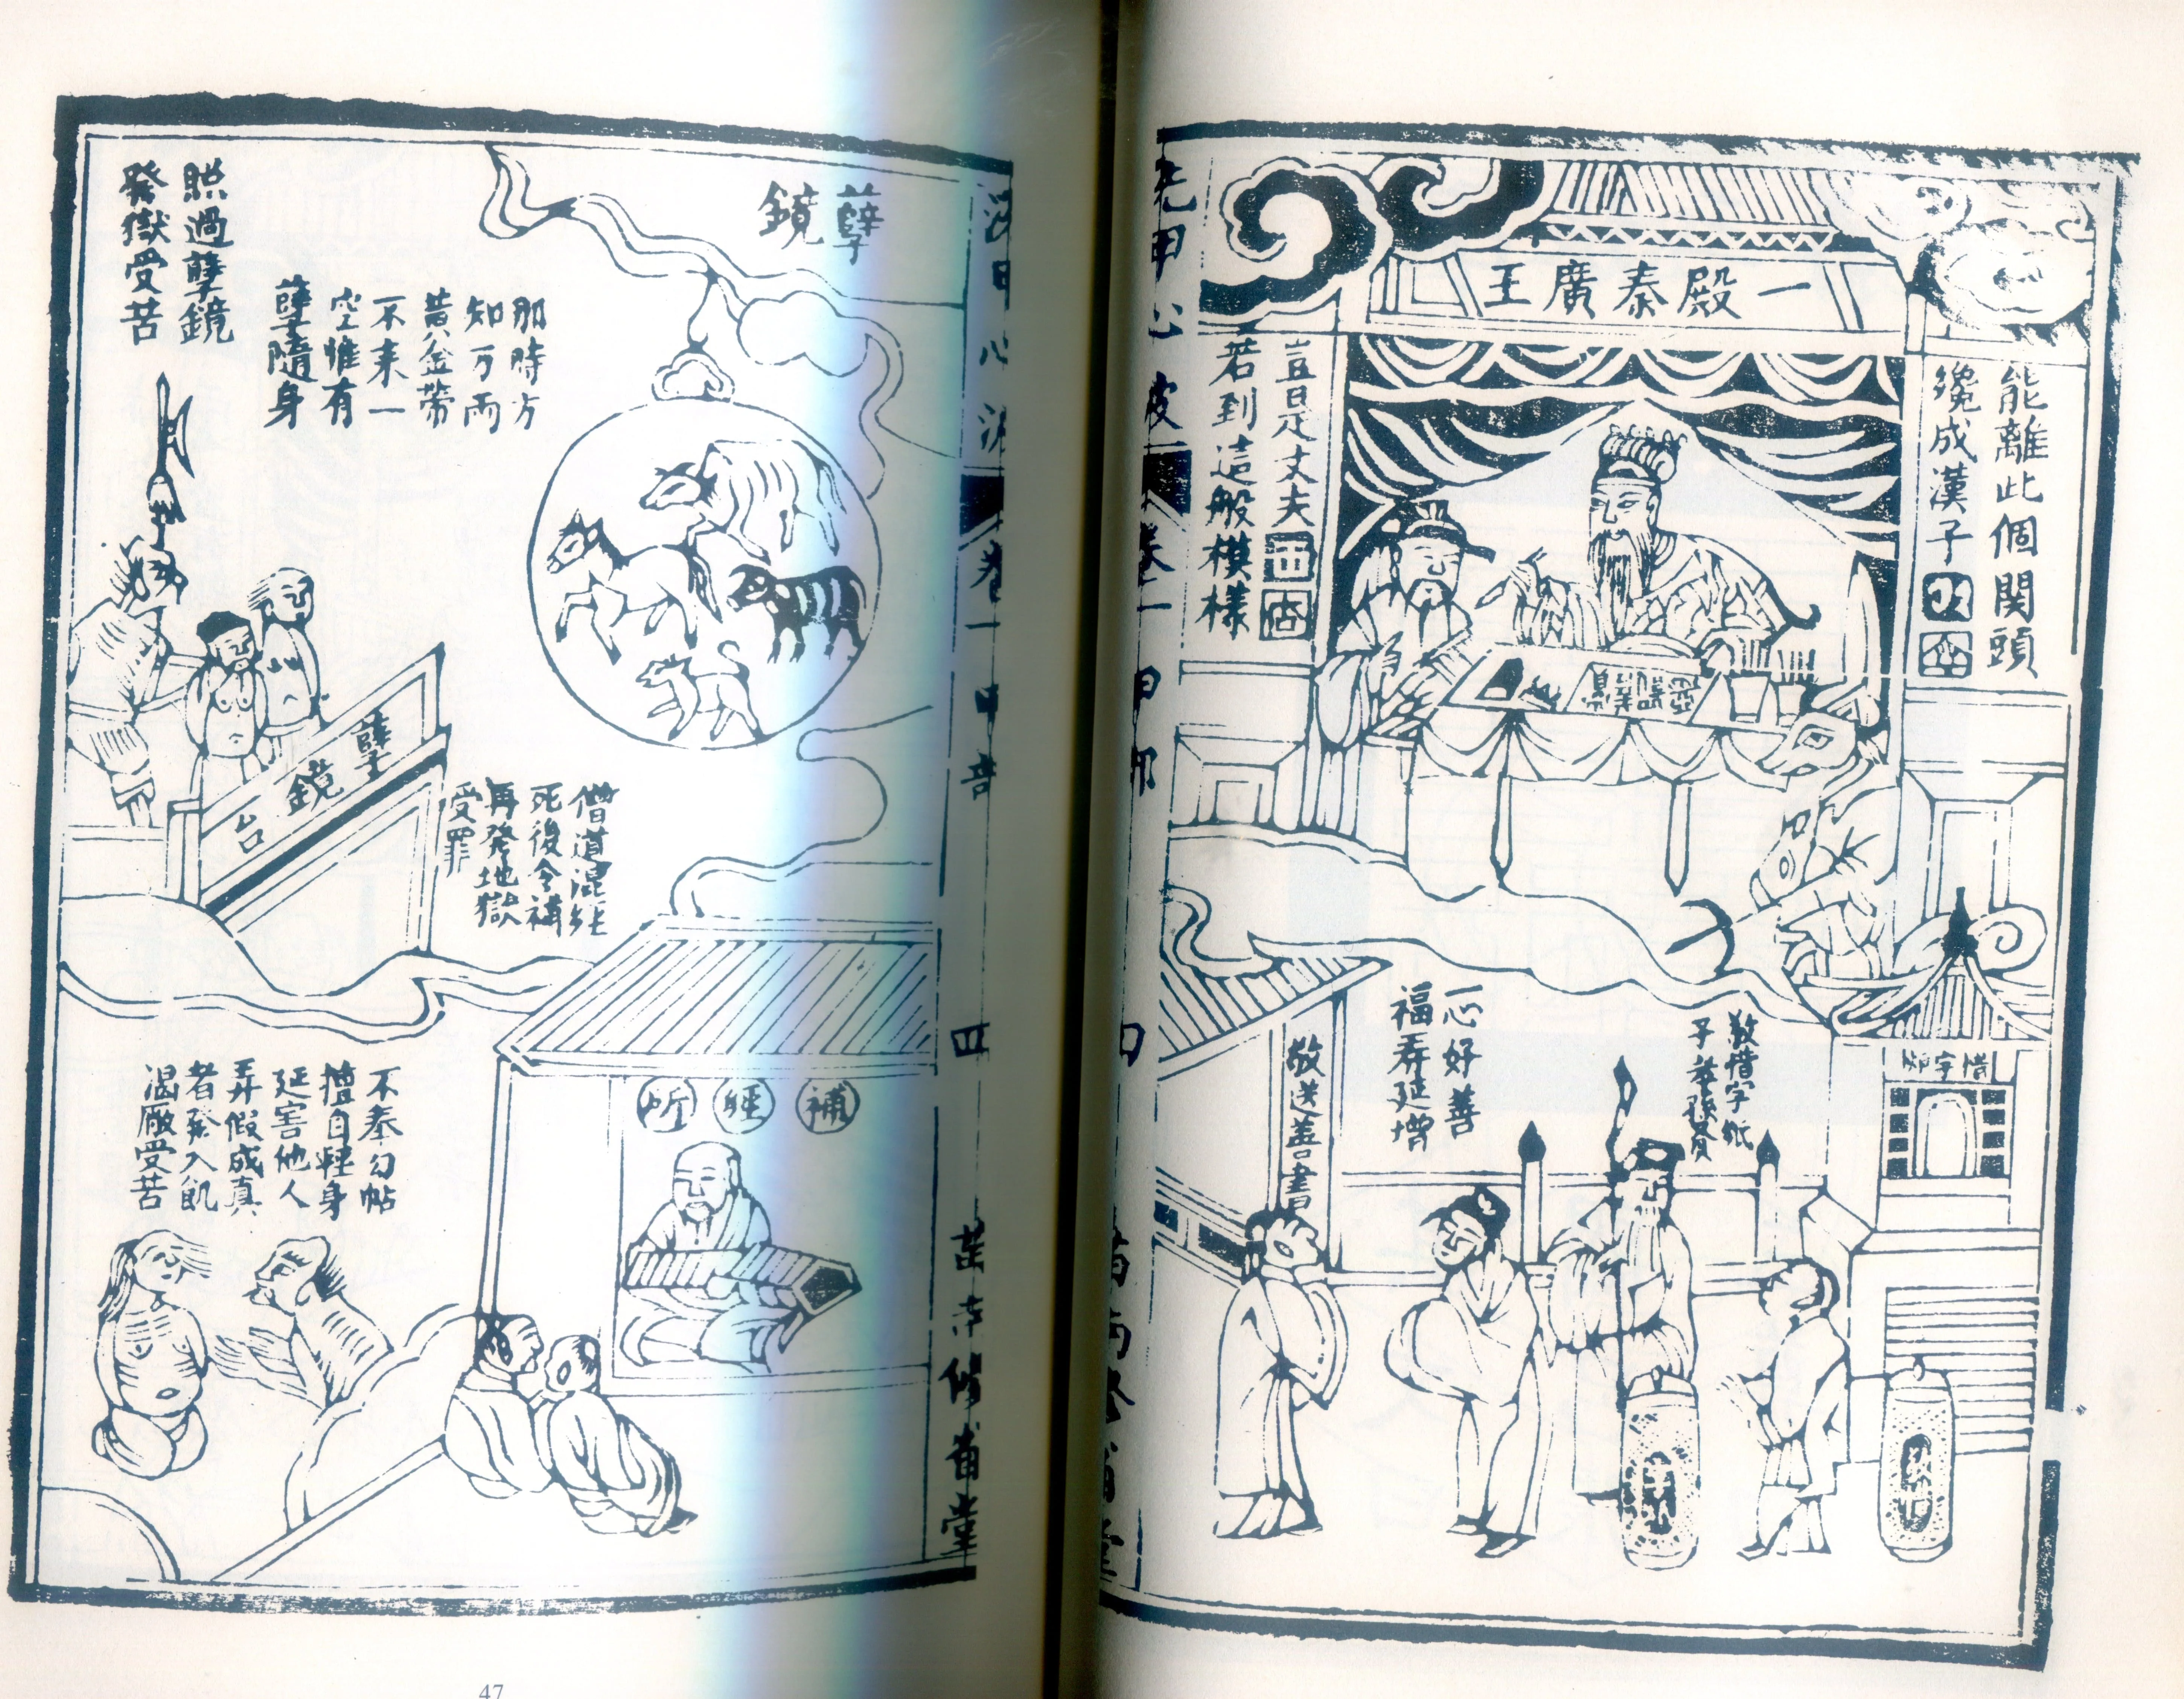 一殿秦廣王
能離此個関頭
纔成漢子
豈是丈夫
若到這般模樣
敬惜字紙
子孝孫賢
惜字
一心好善
福弄延增
敬送善書
卷一
甲部
四
孽鏡
那時方
知万両
黄金帶
不来一
空惟有
孽隨身
照過孽鏡
發獄受苦
孽鏡台
僧道混
死後令補
再發地獄
受罪
補經所
不奉勾帖
擅自輕身
延害他人
弄假成真
者發入飢
渴厰受苦
47